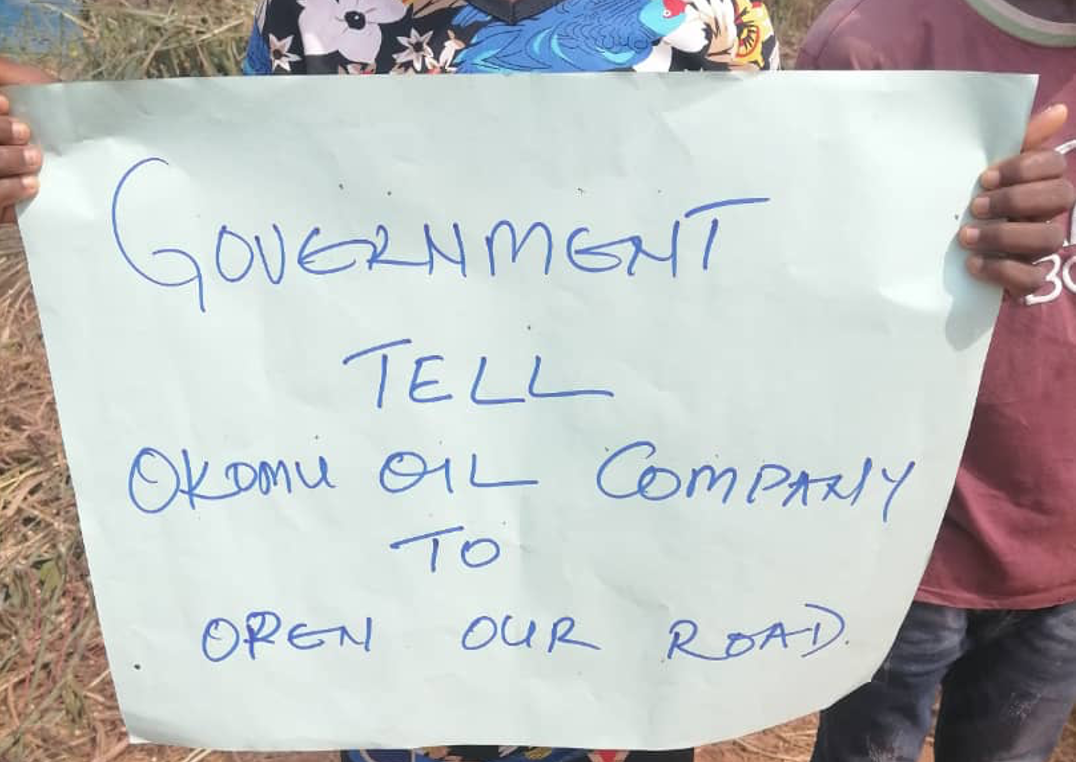 GOVERNMENT
TELL
OKOMU OIL COMPANY
TO
OPEN OUR ROAD.